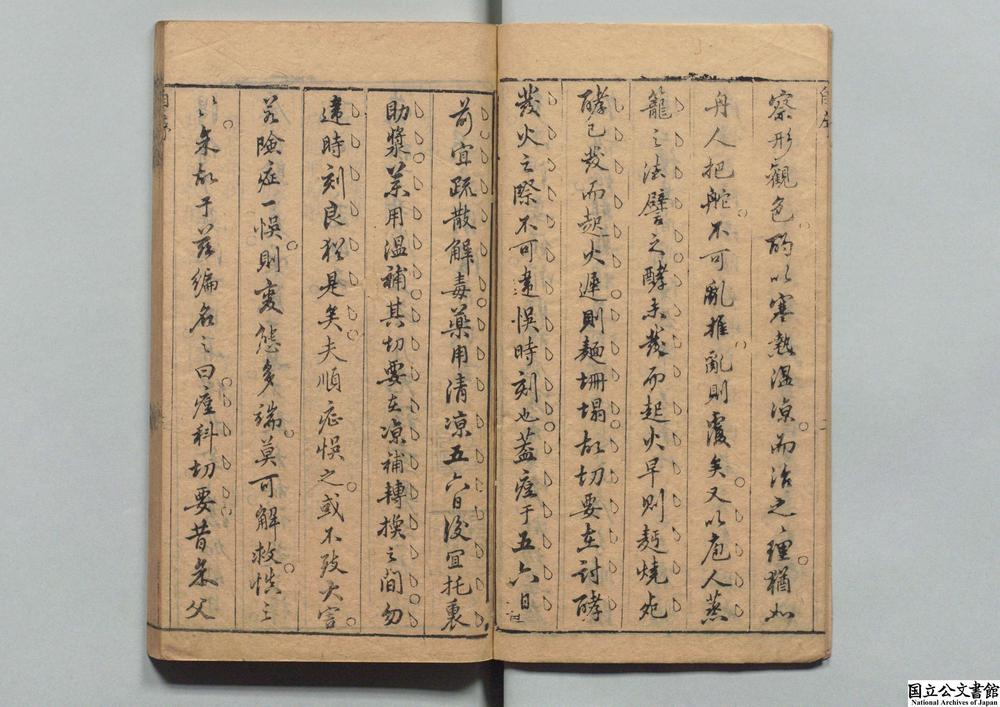 察形觀色酌以寒熱溫凉而治之理猶如
舟人把舵不可亂推亂則覆矣又以庖人蒸
籠之法譬之酵未發而起火早則麵燒
酵已發而起火遲則麵坍塌故切要在討酵
發火之際不可違悞時刻也蓋痘于五六日
前宜疏散解毒藥用清凉五六日後宜托裏
助漿藥用溫補其切要在凉補轉換之間勿
違時刻良猶是矣夫順症悞之或不致大害
若險症一悞則變態多端莫可解救慎之
朱故于茲編名之曰痘科切要昔朱父
国立公文書館
National Archives of Japan